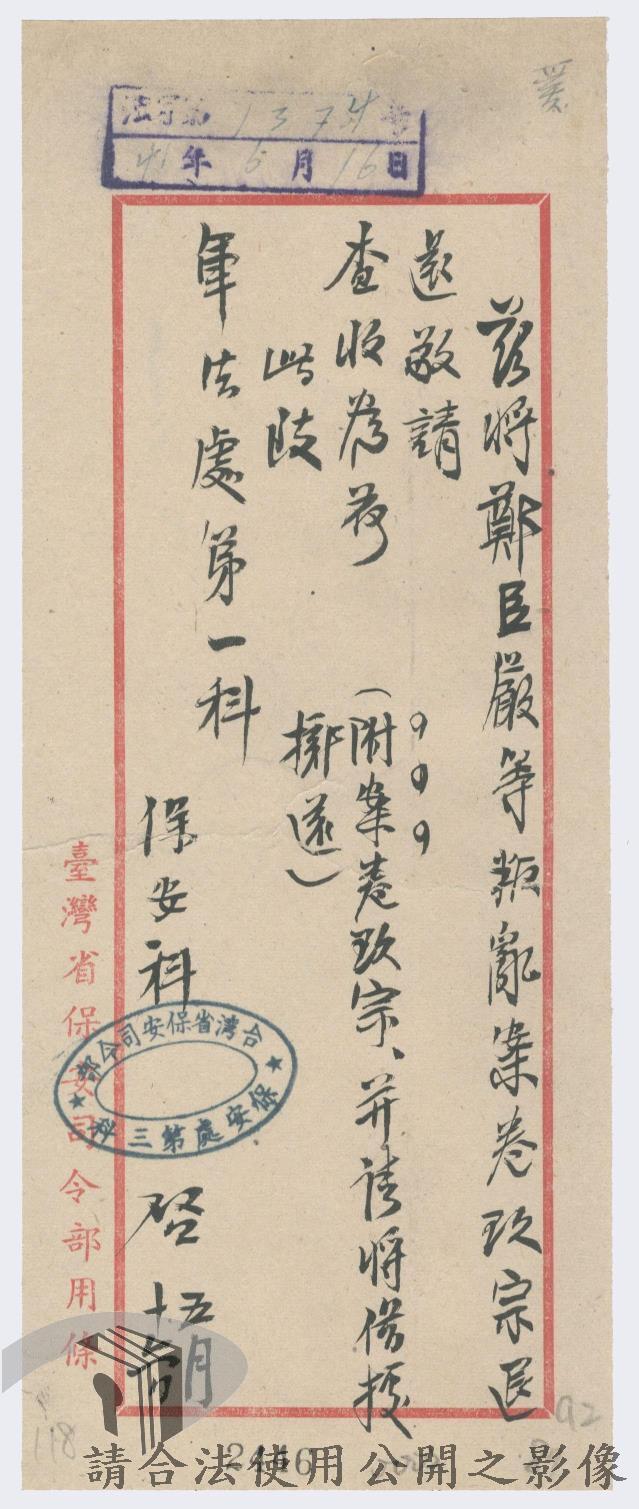 法字第1374號
41年5月16日
茲將鄭臣嚴等叛亂案卷玖宗退
還敬請
查收為荷
(附案卷玖宗、并請將借據
擲還)
此致
軍法處第一科
保安科
啓
五月
台灣省保安司令部
保安處第三科
臺灣省保安司令部用條
92
118
請合法使用公開之影像